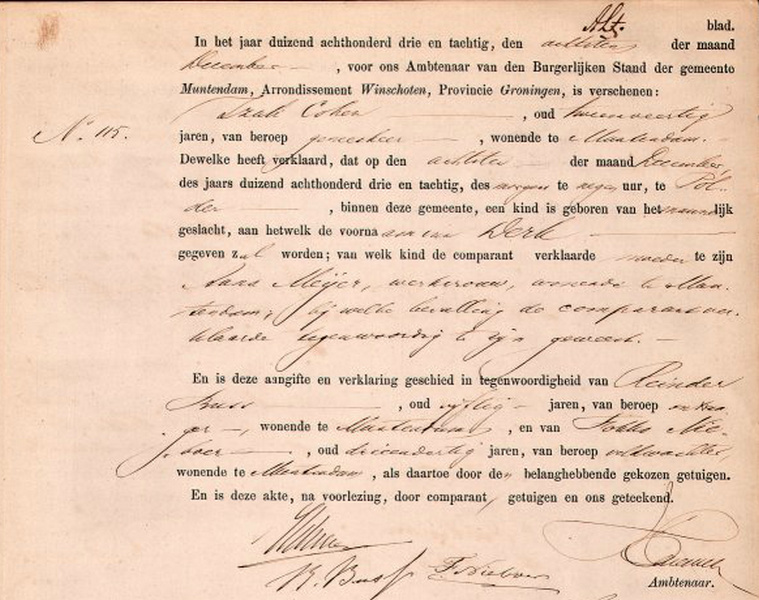 Alt. blad.
In het jaar duizend achthonderd drie en tachtig, den achtsten der maand
December , voor ons Ambtenaar van den Burgerlijken Stand der gemeente
Muntendam, Arrondissement Winschoten, Provincie Groningen, is verschenen:
Izak Cohen , oud tweeenveertig
No. 115.
jaren, van beroep geneesheer , wonende te Muntendam.
Dewelke heeft verklaard, dat op den achtsten der maand December
des jaars duizend achthonderd drie en tachtig, des morgens te negen uur, te Pol-
der , binnen deze gemeente, een kind is geboren van het mannelijk
geslacht, aan hetwelk de voornaam van Derk
gegeven zal worden; van welk kind de comparant verklaarde moeder te zijn
Anna Meijer, werkvrouw, wonende te Mun-
tendam; bij welke bevalling de comparant ver-
klaarde tegenwoordig te zijn geweest.
En is deze aangifte en verklaring geschied in tegenwoordigheid van Reinder
Buss , oud vijftig jaren, van beroep
, wonende te Muntendam , en van Fokko Nie-
boer , oud drieendertig jaren, van beroep veldwachter,
wonende te Muntendam , als daartoe door den belanghebbende gekozen getuigen.
En is deze akte, na voorlezing, door comparant, getuigen en ons geteekend.
R. Buss F Nieboer
Ambtenaar.